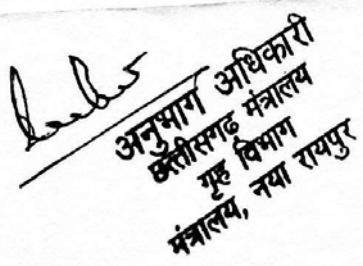 अनुभाग अधिकारी
छत्तीसगढ़ मंत्रालय
गृह विभाग
मंत्रालय, नया रायपुर